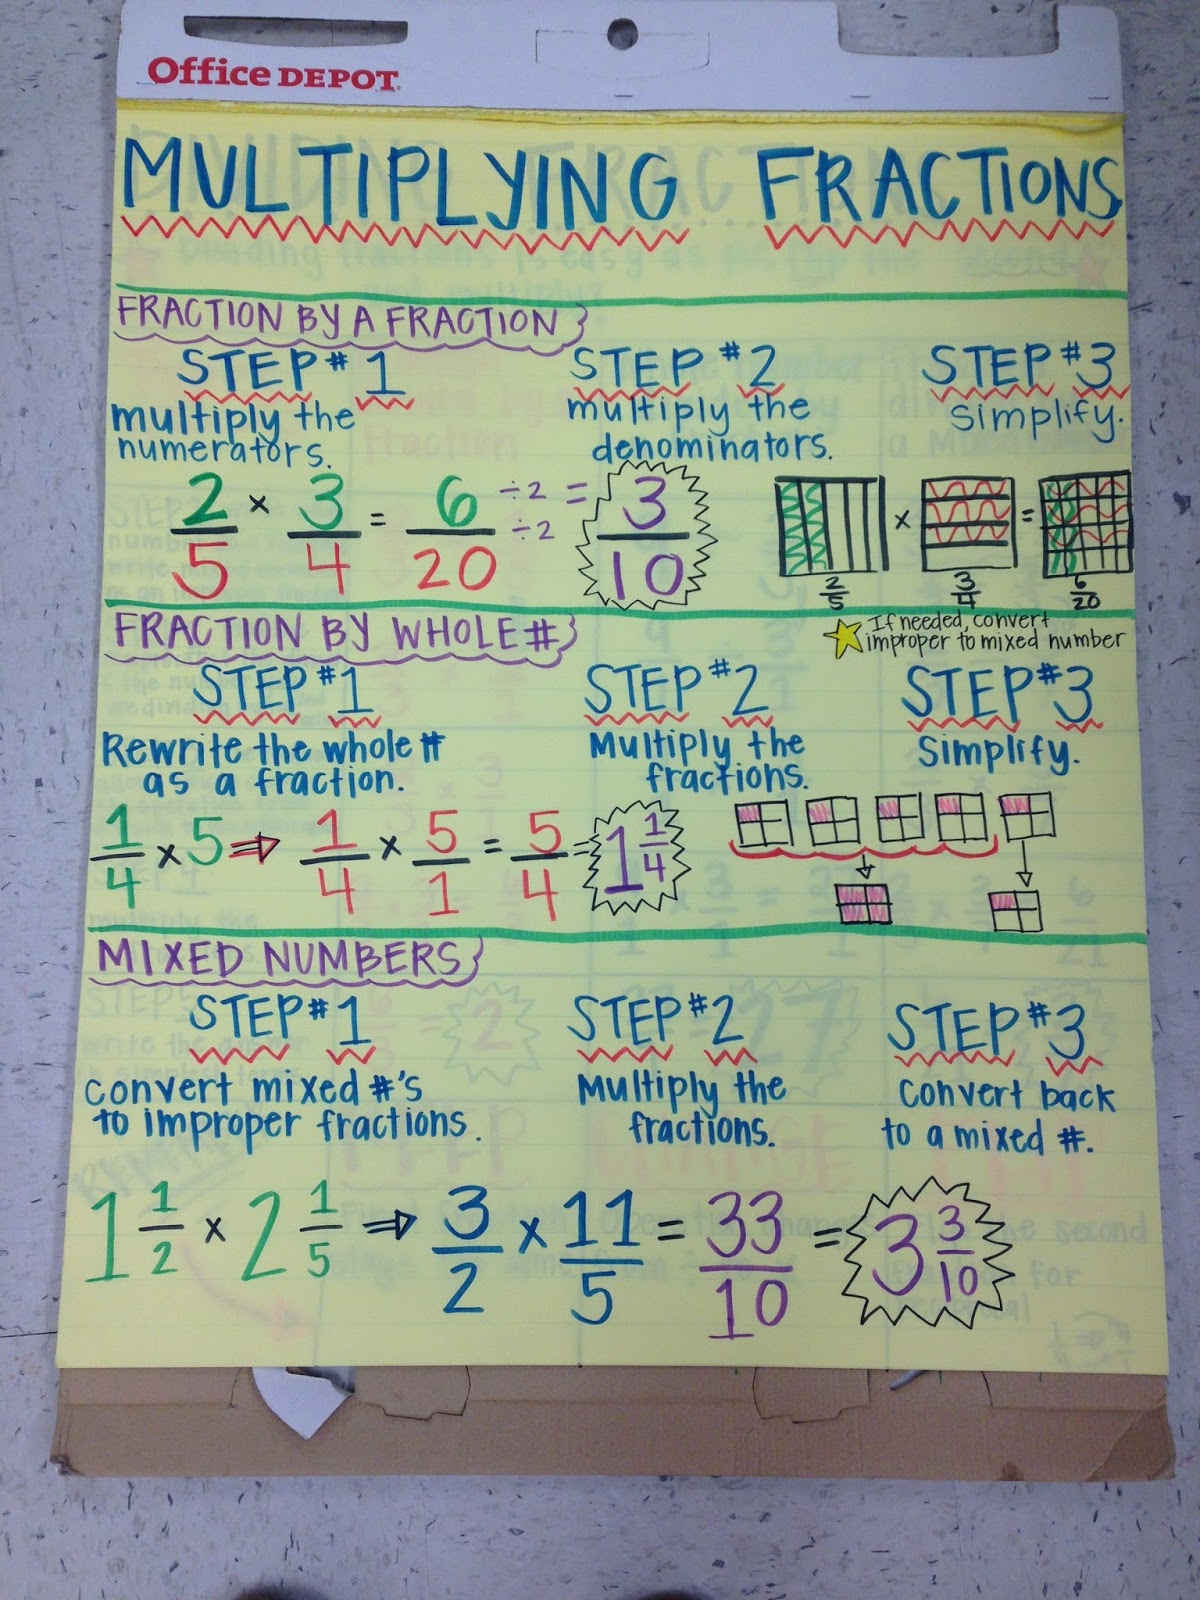 Office DEPOT
MULTIPLYING FRACTIONS
FRACTION BY A FRACTION
STEP #1
multiply the
numerators.
STEP #2
multiply the
denominators.
STEP #3
Simplify.
2/5 × 3/4 = 6/20 ÷2/÷2 = 3/10
× =
2/5 3/4 6/20
FRACTION BY WHOLE #
If needed, convert
improper to mixed number
STEP #1
Rewrite the whole #
as a fraction.
STEP #2
Multiply the
fractions.
STEP #3
Simplify.
1/4 × 5 ⇒ 1/4 × 5/1 = 5/4 = 1 1/4
MIXED NUMBERS
STEP #1
convert mixed #'s
to improper fractions.
STEP #2
Multiply the
fractions.
STEP #3
Convert back
to a mixed #.
1 1/2 × 2 1/5 ⇒ 3/2 × 11/5 = 33/10 = 3 3/10